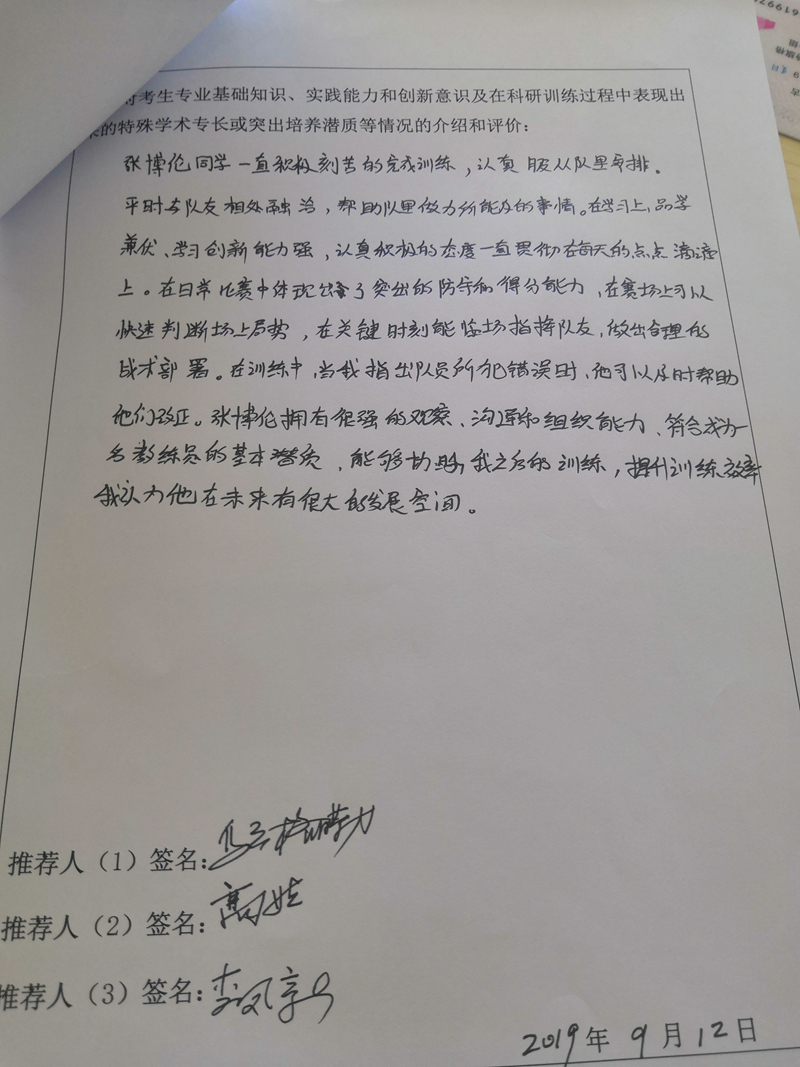 对考生专业基础知识、实践能力和创新意识及在科研训练过程中表现出
来的特殊学术专长或突出培养潜质等情况的介绍和评价：
张博伦同学一直积极刻苦的完成训练，认真服从队里安排。
平时与队友相处融洽，帮助队里做力所能及的事情。在学习上，品学
兼优、学习创新能力强，认真积极的态度一直贯彻在每天的点点滴滴
上。在日常比赛中体现出了突出的防守和得分能力，在赛场上可以
快速判断场上局势，在关键时刻能临场指挥队友，做出合理的
战术部署。在训练中，当我指出队员所犯错误时，他可以及时帮助
他们改正。张博伦拥有很强的观察、沟通和组织能力、符合成为一
名教练员的基本潜质，能够协助我之后的训练，提升训练效率
我认为他在未来有很大的发展空间。
推荐人（1）签名：
推荐人（2）签名：
推荐人（3）签名：
2019年 9 月 12 日